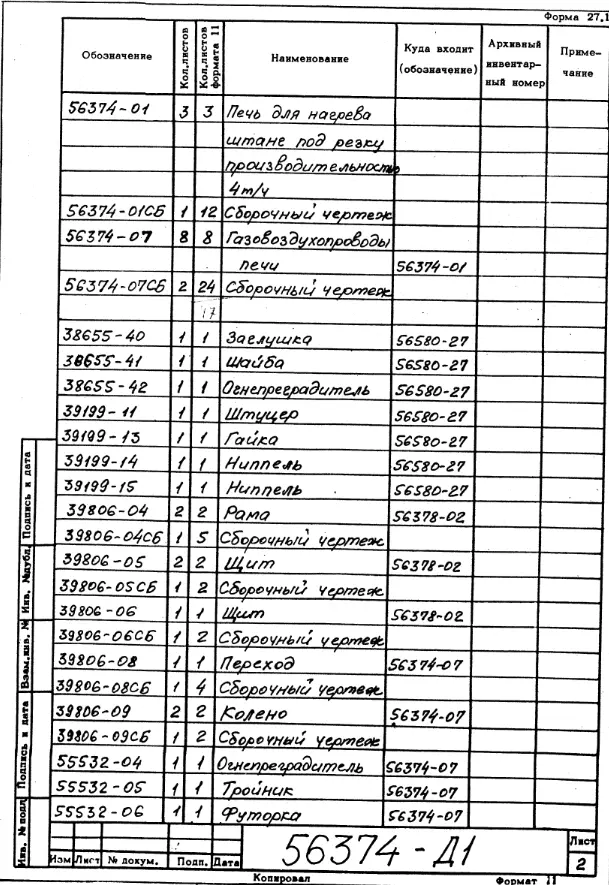 Форма 27.1
Обозначение Кол.листов Кол.листов формата 11 Наименование Куда входит (обозначение) Архивный инвентар-ный номер Приме-чание
56374-01 3 3 Печь для нагрева
штанг под резку
производительностью
4т/ч
56374-01СБ 1 12 Сборочный чертеж
56374-07 8 8 Газовоздухопроводы
печи 56374-01
56374-07СБ 2 24 Сборочный чертеж
17
38655-40 1 1 Заглушка 56580-27
38655-41 1 1 Шайба 56580-27
38655-42 1 1 Огнепреградитель 56580-27
39199-11 1 1 Штуцер 56580-27
39199-13 1 1 Гайка 56580-27
39199-14 1 1 Ниппель 56580-27
39199-15 1 1 Ниппель 56580-27
39806-04 2 2 Рама 56378-02
39806-04СБ 1 5 Сборочный чертеж
39806-05 2 2 Щит 56378-02
39806-05СБ 1 2 Сборочный чертеж
39806-06 1 1 Щит 56378-02
39806-06СБ 1 2 Сборочный чертеж
39806-08 1 1 Переход 56374-07
39806-08СБ 1 4 Сборочный чертеж
39806-09 2 2 Колено 56374-07
39806-09СБ 1 2 Сборочный чертеж
55532-04 1 1 Огнепреградитель 56374-07
55532-05 1 1 Тройник 56374-07
55532-06 1 1 Футорка 56374-07
Подпись и дата
Инв. №дубл.
Взам.инв. №
Подпись и дата
Инв. № подл
56374-Д1
Лист
2
Изм Лист № докум. Подп. Дата
Копировал Формат 11